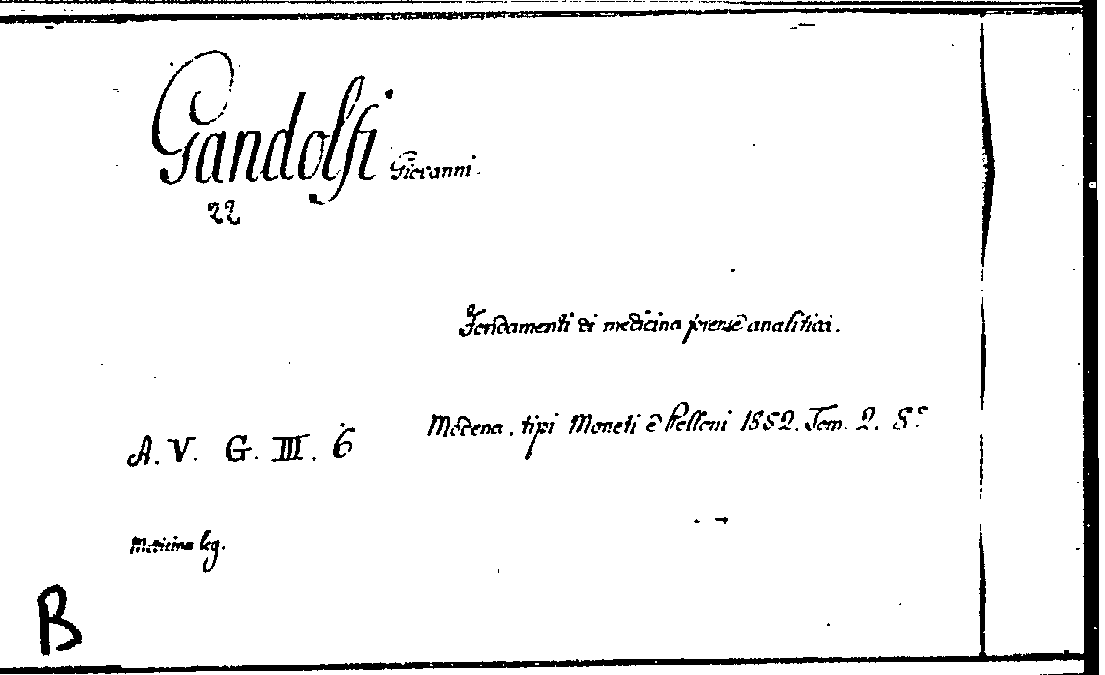 Gandolfi Giovanni.
22
Fondamenti di medicina forense analitica.
Modena, tipi Moneti e Pelloni 1852. Tom. 2. 8°
A. V. G. III. 6
Medicina leg.
B